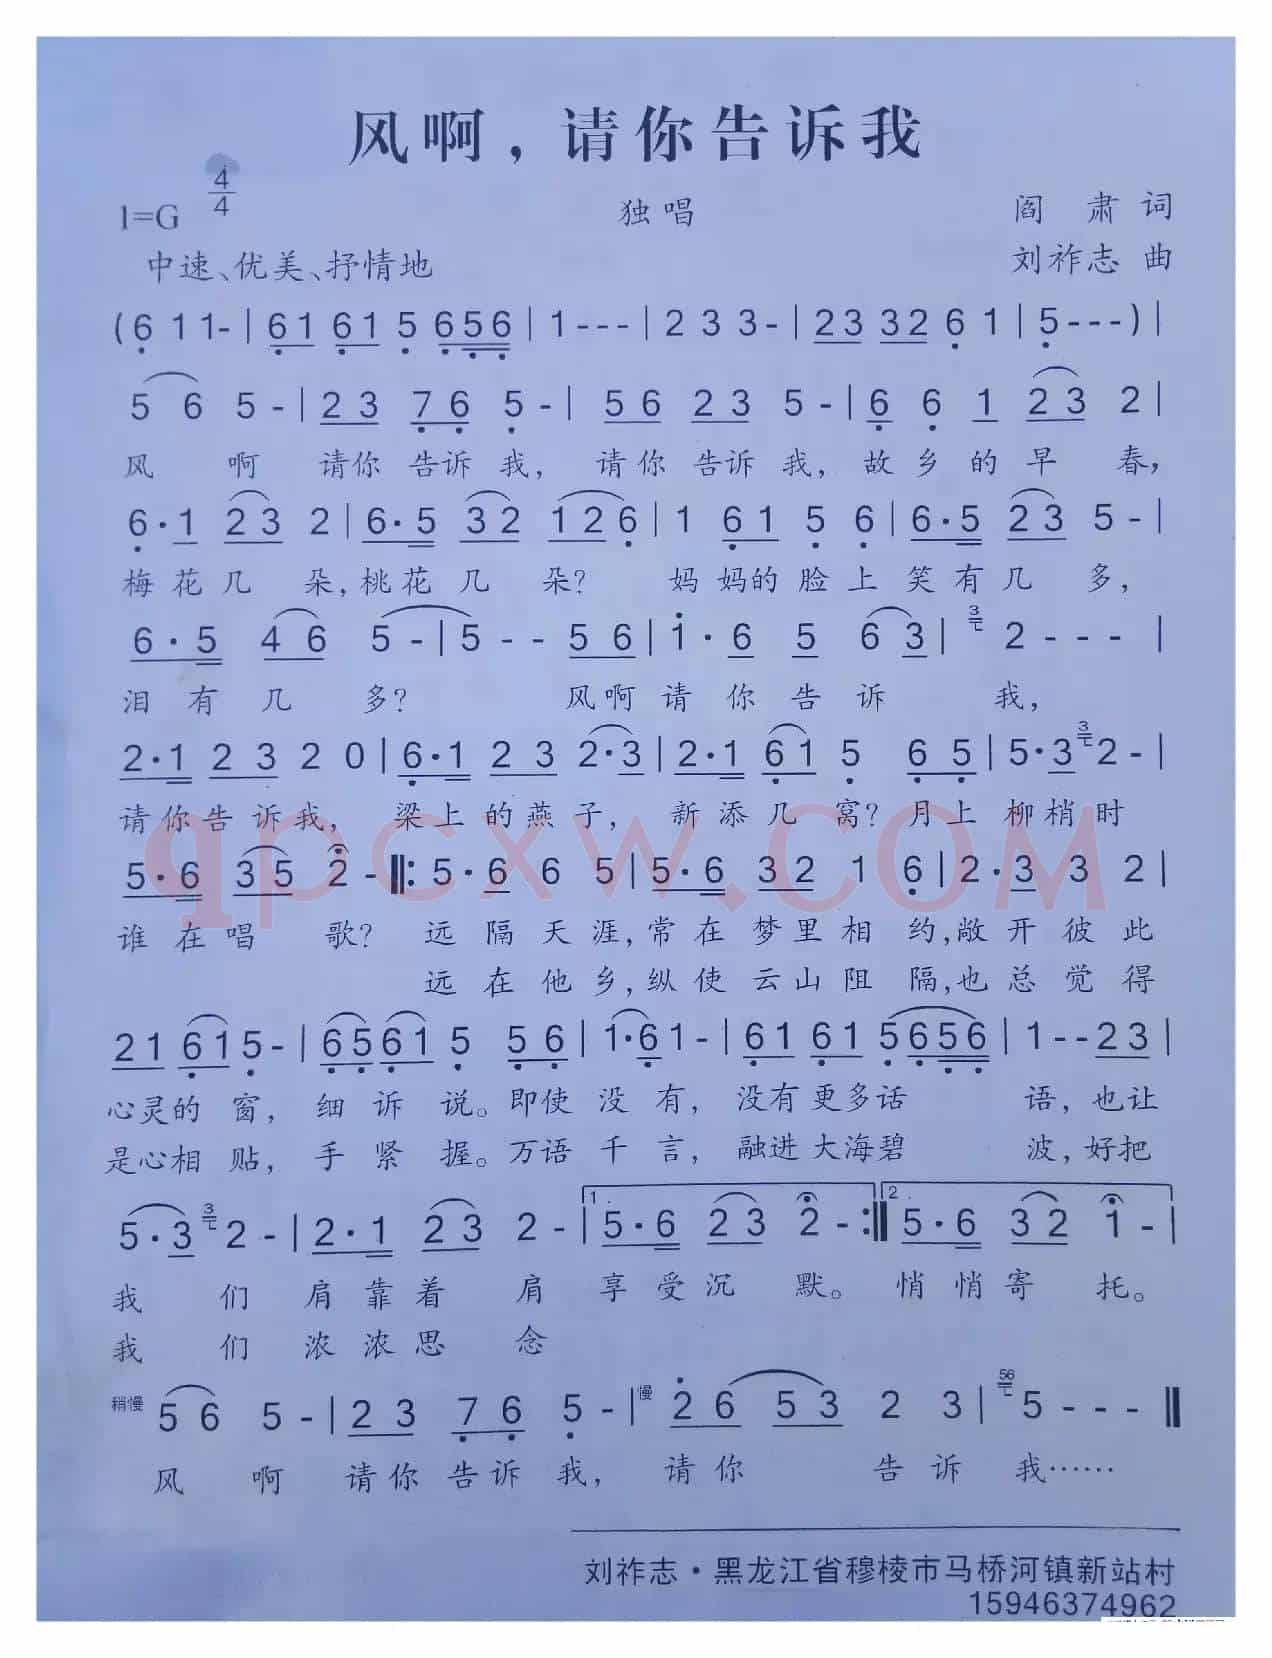 风啊，请你告诉我
1=G 4/4 独唱 阎肃词
中速、优美、抒情地 刘祚志 曲
(6 1 1 - | 6 1 6 1 5 6 5 6 | 1 - - - | 2 3 3 - | 2 3 3 2 6 1 | 5 - - - ) |
5 6 5 - | 2 3 7 6 5 - | 5 6 2 3 5 - | 6 6 1 2 3 2 |
风 啊 请你 告诉 我， 请你 告诉 我， 故乡 的 早 春，
6 · 1 2 3 2 | 6 · 5 3 2 1 2 6 | 1 6 1 5 6 | 6 · 5 2 3 5 - |
梅花几 朵，桃花几 朵？ 妈 妈的脸上 笑有几 多，
6 · 5 4 6 5 - | 5 - - 5 6 | 1 · 6 5 6 3 | 3 2 - - - |
泪有几 多？ 风啊 请你告诉 我，
2 · 1 2 3 2 0 | 6 · 1 2 3 2 · 3 | 2 · 1 6 1 5 6 5 | 5 · 3 3 2 - |
请你告诉我， 梁上的燕子， 新添几 窝？月上 柳梢时
5 · 6 3 5 2 - ‖: 5 · 6 6 5 | 5 · 6 3 2 1 6 | 2 · 3 3 2 |
谁在唱 歌？ 远隔天涯，常在梦里相约，敞开彼此
远在他乡，纵使云山阻隔，也总觉得
2 1 6 1 5 - | 6 5 6 1 5 5 6 | 1 · 6 1 - | 6 1 6 1 5 6 5 6 | 1 - - 2 3 |
心灵的 窗， 细诉 说。即使没 有， 没有更多话 语，也让
是心相 贴， 手紧 握。万语千 言， 融进大海碧 波，好把
5 · 3 3 2 - | 2 · 1 2 3 2 - | 1. 5 · 6 2 3 2 - :‖ 2. 5 · 6 3 2 1 - |
我 们 肩靠着 肩 享受沉 默。 悄悄寄 托。
我 们 浓浓思 念
稍慢 5 6 5 - | 2 3 7 6 5 - | 慢 2 6 5 3 2 3 | 56 5 - - - ‖
风 啊 请你告诉 我， 请你 告诉 我……
刘祚志·黑龙江省穆棱市马桥河镇新站村
15946374962
qpcxw.com